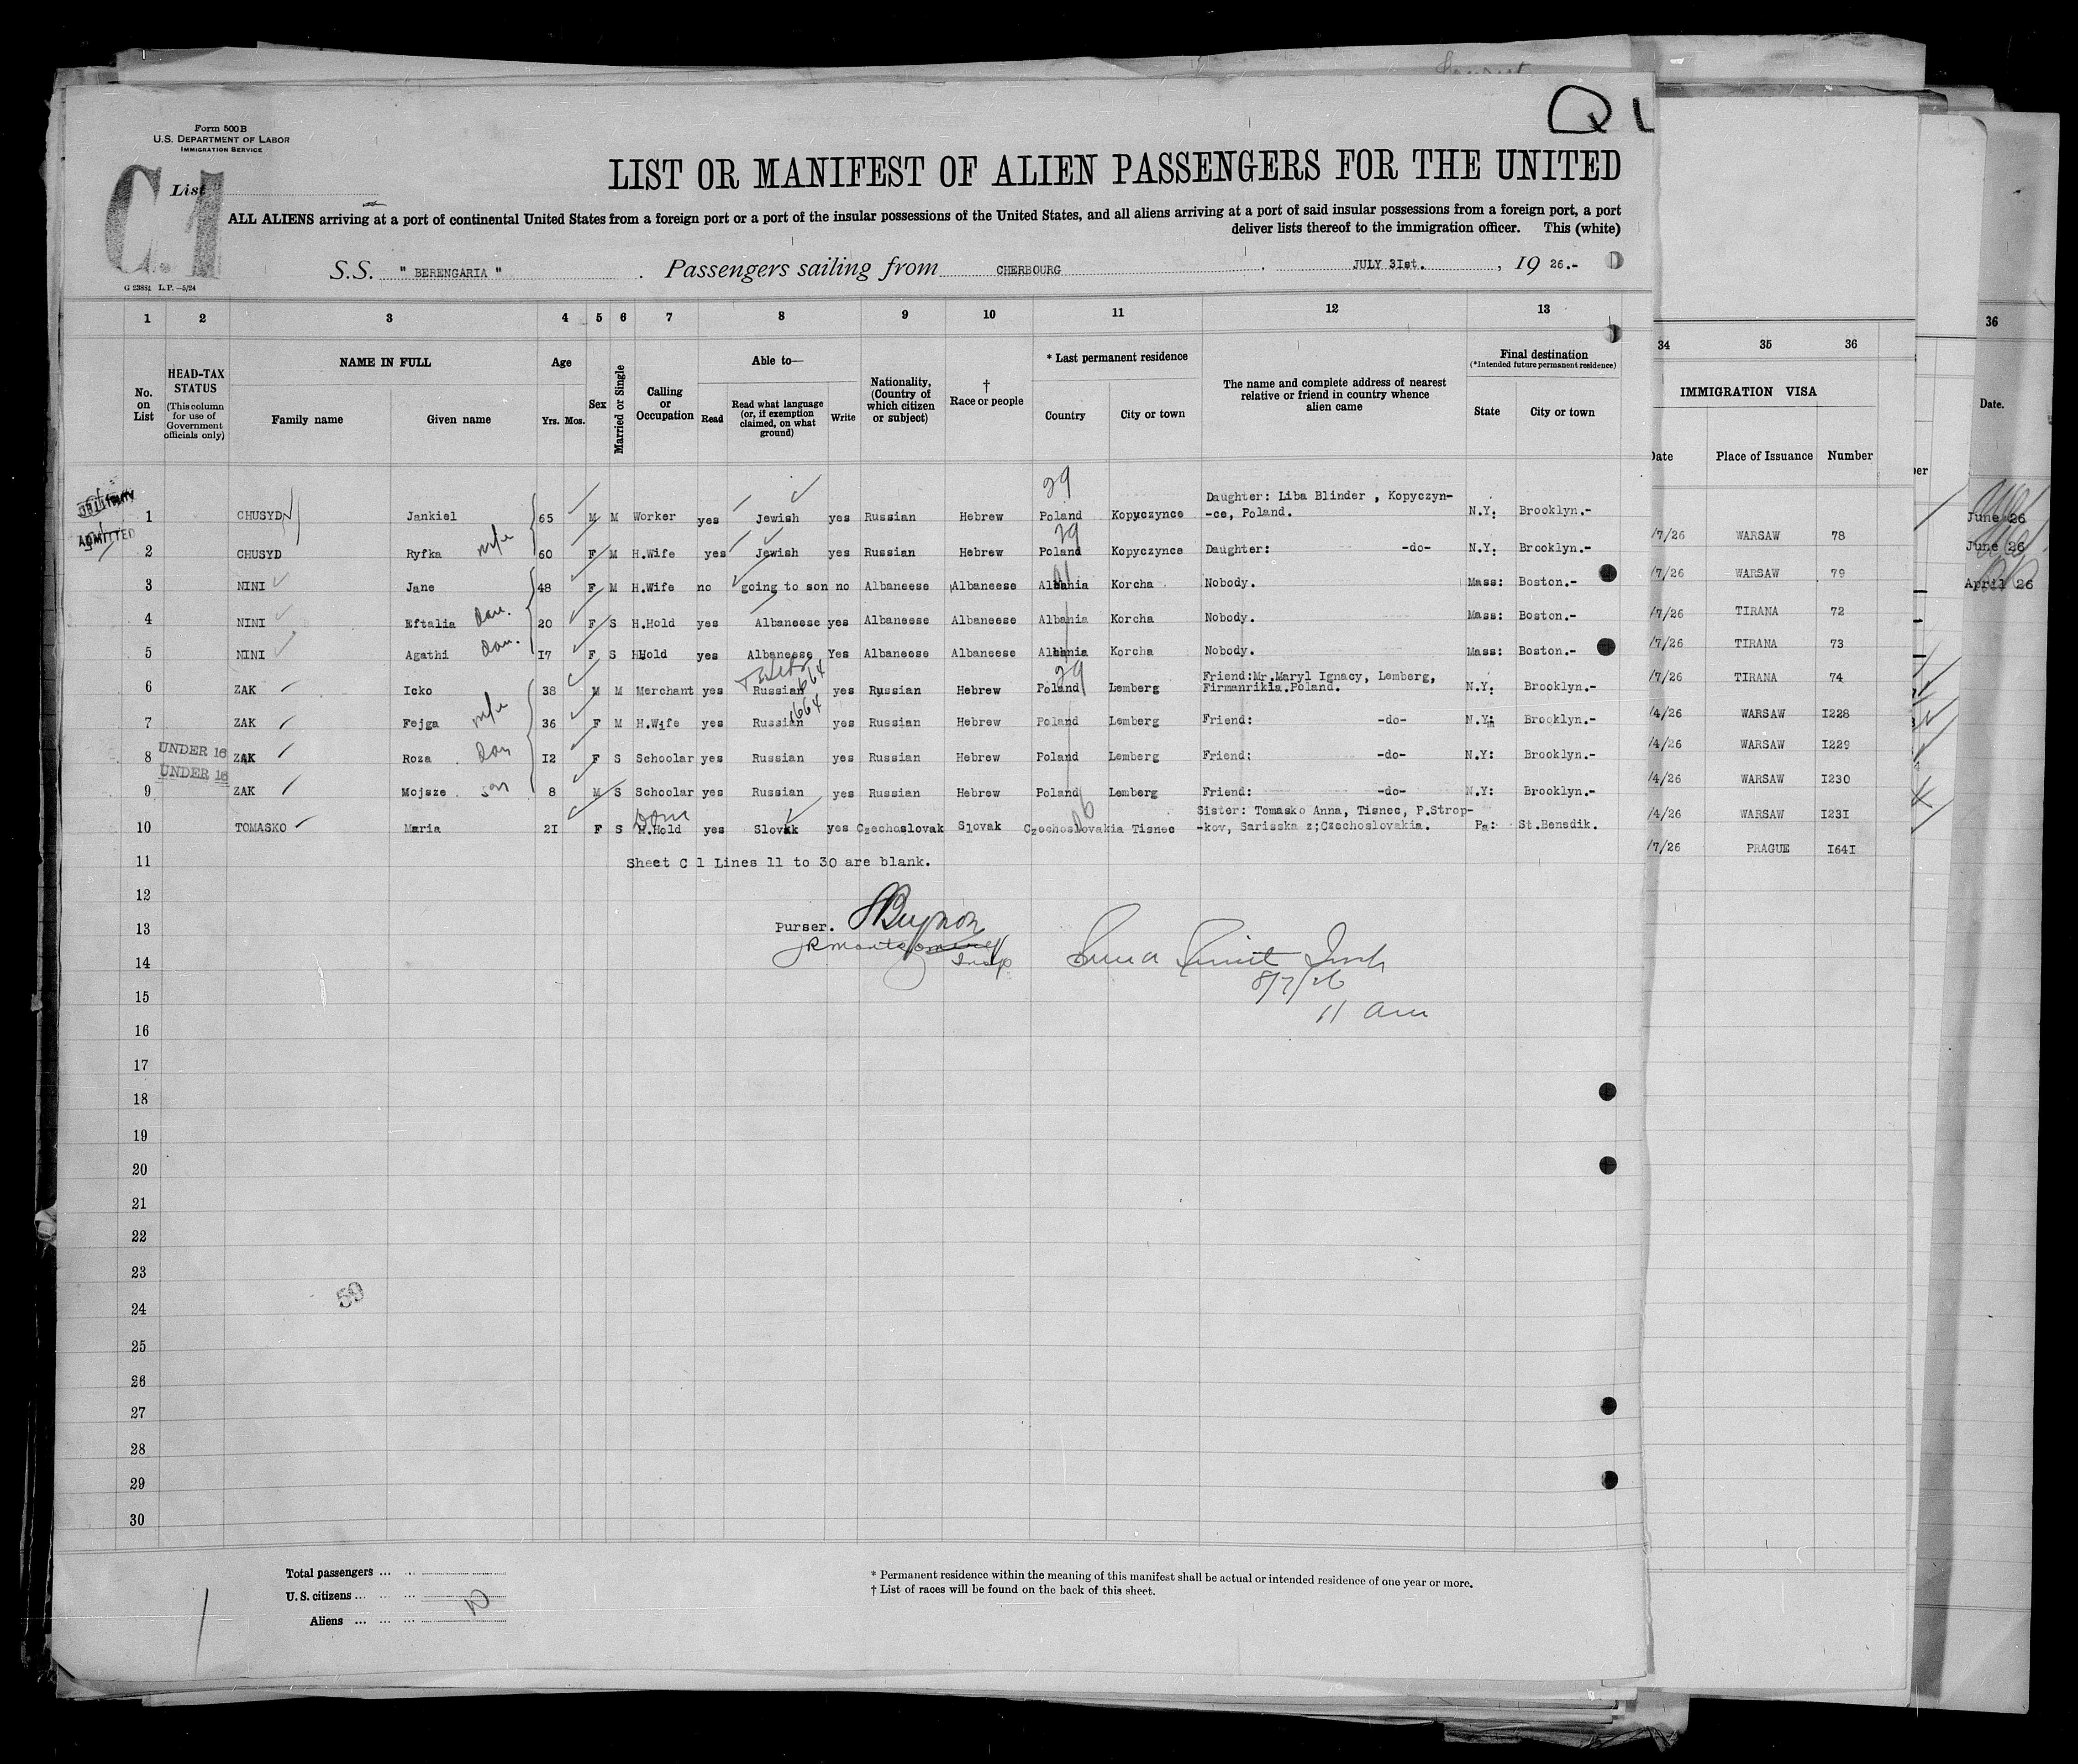 Form 500 B
U.S. DEPARTMENT OF LABOR
IMMIGRATION SERVICE
C.1
List
LIST OR MANIFEST OF ALIEN PASSENGERS FOR THE UNITED
ALL ALIENS arriving at a port of continental United States from a foreign port or a port of the insular possessions of the United States, and all aliens arriving at a port of said insular possessions from a foreign port, a port
deliver lists thereof to the immigration officer. This (white)
S.S. " BERENGARIA " . Passengers sailing from CHERBOURG , JULY 3Ist. , 19 26.-
G 23851 L.P.—5/24
1 2 3 4 5 6 7 8 9 10 11 12 13
No. on List
HEAD-TAX STATUS (This column for use of Government officials only)
NAME IN FULL Family name Given name
Age Yrs. Mos.
Sex
Married or Single
Calling or Occupation
Able to— Read Read what language (or, if exemption claimed, on what ground) Write
Nationality, (Country of which citizen or subject)
† Race or people
* Last permanent residence Country City or town
The name and complete address of nearest relative or friend in country whence alien came
Final destination (*Intended future permanent residence) State City or town
34 35 36
IMMIGRATION VISA
Date Place of Issuance Number
36
Date.
29
ADMITTED
1 CHUSYD Jankiel 65 M M Worker yes Jewish yes Russian Hebrew Poland Kopyczynce Daughter: Liba Blinder , Kopyczyn-
-ce, Poland. N.Y: Brooklyn.-
29
2 CHUSYD Ryfka wife 60 F M H.Wife yes Jewish yes Russian Hebrew Poland Kopyczynce Daughter: -do- N.Y: Brooklyn.-
3 NINI Jane 48 F M H.Wife no going to son no Albaneese Albaneese Albania Korcha Nobody. Mass: Boston.-
4 NINI Eftalia dau. 20 F S H.Hold yes Albaneese yes Albaneese Albaneese Albania Korcha Nobody. Mass: Boston.-
5 NINI Agathi dau. I7 F S HHold yes Albaneese Yes Albaneese Albaneese Albania Korcha Nobody. Mass: Boston.-
29
6 ZAK Icko 38 M M Merchant yes Russian 664 yes Russian Hebrew Poland Lemberg Friend:Mr.Maryl Ignacy, Lemberg,
Firmanrikia.Poland. N.Y: Brooklyn.-
7 ZAK Fejga wife 36 F M H.Wife yes Russian 664 yes Russian Hebrew Poland Lemberg Friend: -do- N.Y: Brooklyn.-
UNDER 16
8 ZAK Roza dau I2 F S Schoolar yes Russian yes Russian Hebrew Poland Lemberg Friend: -do- N.Y: Brooklyn.-
UNDER 16
9 ZAK Mojsze son 8 M S Schoolar yes Russian yes Russian Hebrew Poland Lemberg Friend: -do- N.Y: Brooklyn.-
Dom
10 TOMASKO Maria 2I F S H.Hold yes Slovak yes Czechoslovak Slovak Czechoslovakia Tisnec Sister: Tomasko Anna, Tisnec, P.Strop-
-kov, Sarisska z;Czechoslovakia. Pa: St.Benedik.
11 Sheet C 1 Lines 11 to 30 are blank.
12
13 Purser.
14 Insp
8/7/26
15
11 am
16
17
18
19
20
21
22
23
59
24
25
26
27
28
29
30
June 26
June 26
April 26
/7/26 WARSAW 78
/7/26 WARSAW 79
/7/26 TIRANA 72
/7/26 TIRANA 73
/7/26 TIRANA 74
/4/26 WARSAW I228
/4/26 WARSAW I229
/4/26 WARSAW I230
/4/26 WARSAW I23I
/7/26 PRAGUE I64I
Total passengers ... ...
U.S. citizens ... ... ...
Aliens ... ... ...
10
* Permanent residence within the meaning of this manifest shall be actual or intended residence of one year or more.
† List of races will be found on the back of this sheet.